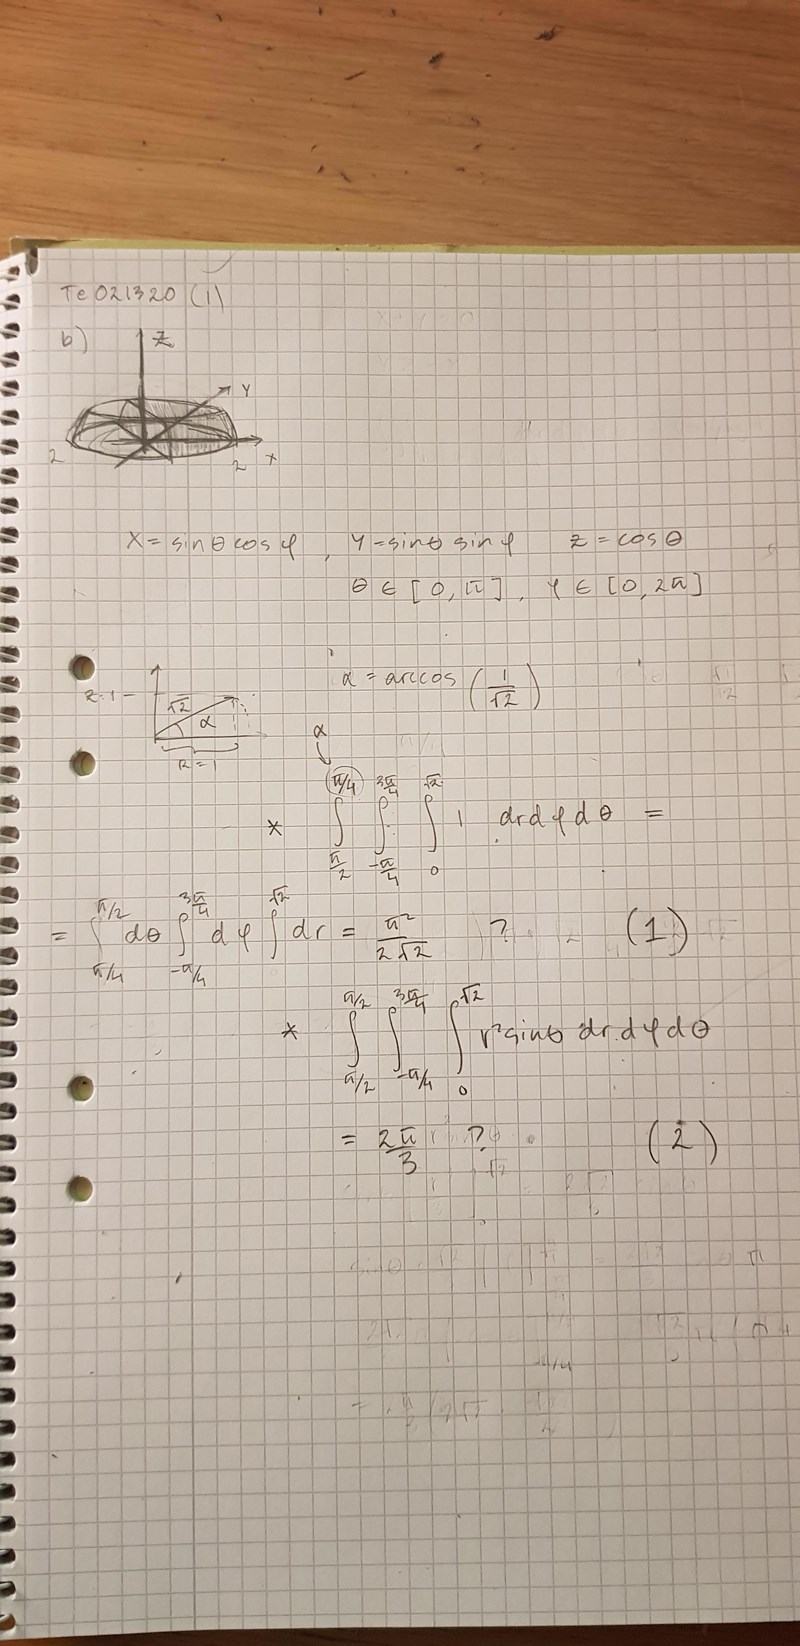 Te021320 (1)
b)
z
y
2
2
x
x = sinθ cosφ , y = sinθ sinφ z = cosθ
θ ∈ [0, π] , φ ∈ [0, 2π]
z=1
√2
α
R = 1
α = arccos (1/√2)
α
* ∫_{π/2}^{π/4} ∫_{-π/4}^{3π/4} ∫_0^{√2} 1 dr dφ dθ =
= ∫_{π/4}^{π/2} dθ ∫_{-π/4}^{3π/4} dφ ∫^{√2} dr = π²/(2√2) ? (1)
* ∫_{π/2}^{π/2} ∫_{-π/4}^{3π/4} ∫_0^{√2} r² sinθ dr dφ dθ
= 2π/3 ? (2)